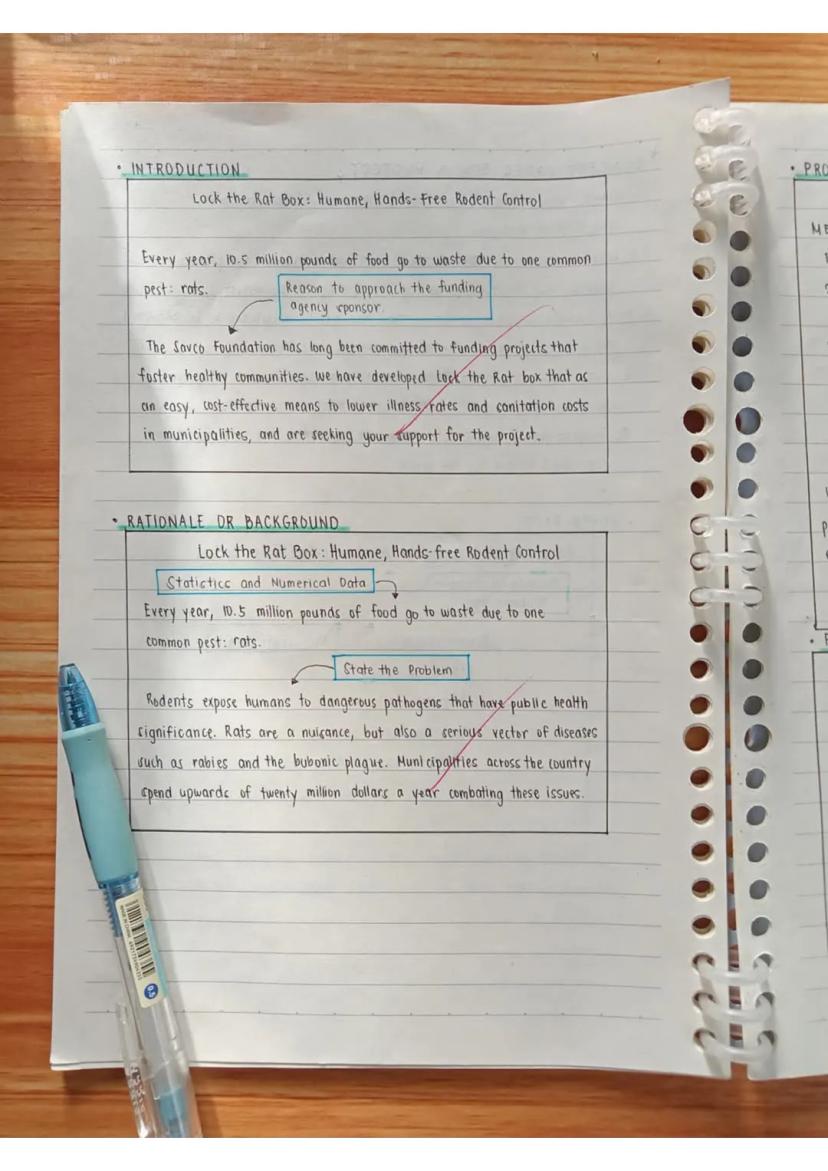 • INTRODUCTION
Lock the Rat Box: Humane, Hands-Free Rodent Control
Every year, 10.5 million pounds of food go to waste due to one common
pest: rats.
Reason to approach the funding
agency sponsor
The Savco Foundation has long been committed to funding projects that
foster healthy communities. We have developed Lock the Rat box that as
an easy, cost-effective means to lower illness rates and sanitation costs
in municipalities, and are seeking your support for the project.
• RATIONALE OR BACKGROUND
Lock the Rat Box: Humane, Hands-free Rodent Control
Statistics and Numerical Data
Every year, 10.5 million pounds of food go to waste due to one
common pest: rats.
State the Problem
Rodents expose humans to dangerous pathogens that have public health
significance. Rats are a nuisance, but also a serious vector of diseases
such as rabies and the bubonic plague. Municipalities across the country
spend upwards of twenty million dollars a year combating these issues.
• PRO
ME
0.5